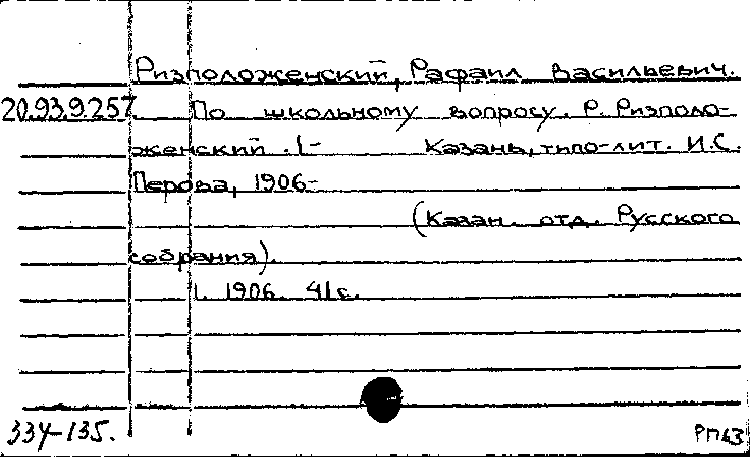 Ризположенский, Рафаил Васильевич.
20.93.9.257. По школьному вопросу. Р. Ризполо-
женский. 1- Казань, типо-лит. И.С.
Перова, 1906-
(Казан. отд. Русского
собрания).
1. 1906. 41с.
334-135.